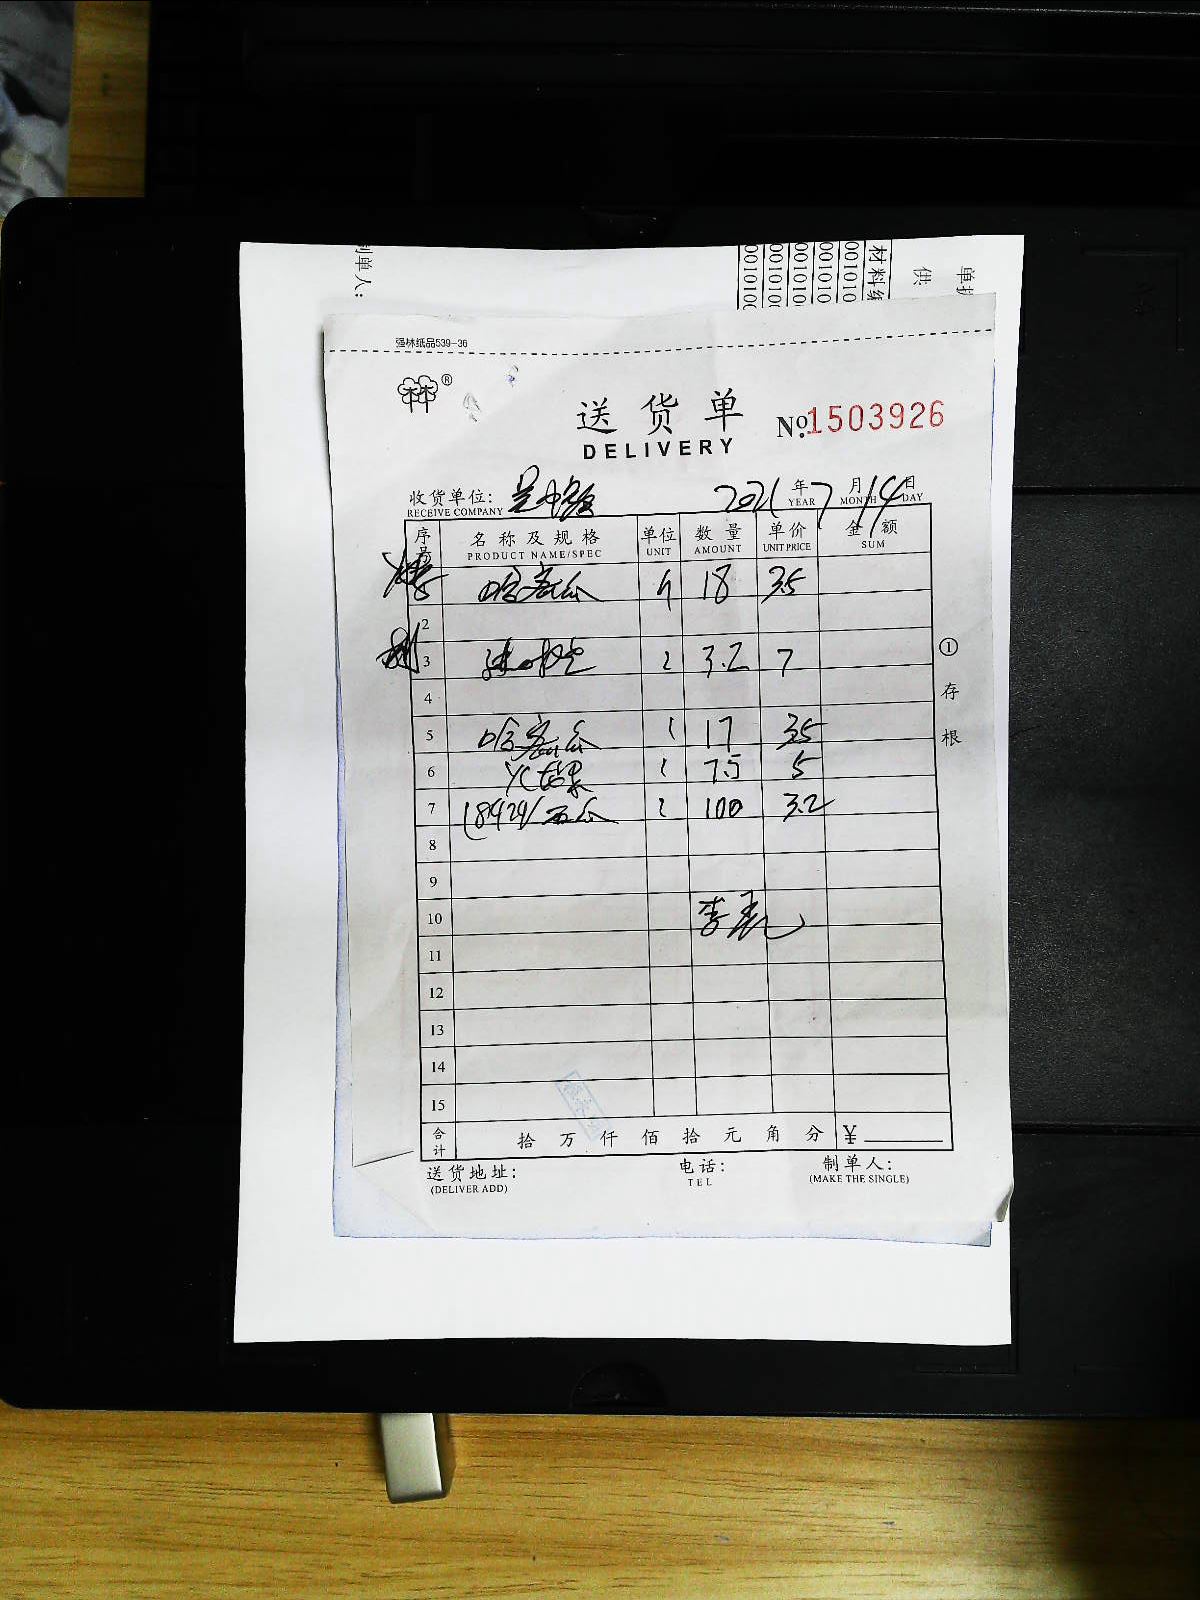 制单人:
材料
供
单
0010100
0010100
0010100
001010
001010
强林纸品539-36
林®
送货单
DELIVERY
№1503926
收货单位:
RECEIVE COMPANY
2021 年 7 月 14 日
YEAR MONTH DAY
序号 名称及规格 单位 数量 单价 金额
PRODUCT NAME/SPEC UNIT AMOUNT UNIT PRICE SUM
哈密瓜 18 3.5
2
3 3.2 7
4
5 哈密瓜 17 3.5
6 7.5 5
7 西瓜 100 3.2
8
9
10 李
11
12
13
14
15
合计 拾 万 仟 佰 拾 元 角 分 ¥
①存根
送货地址:
(DELIVER ADD)
电话:
TEL
制单人:
(MAKE THE SINGLE)